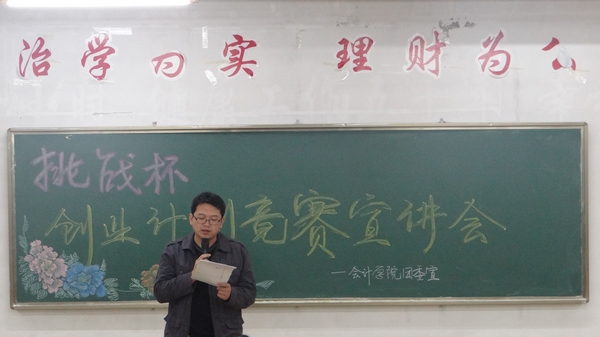 治学曰实 理财为公
挑战杯
创业计划竞赛宣讲会
—会计学院团委宣